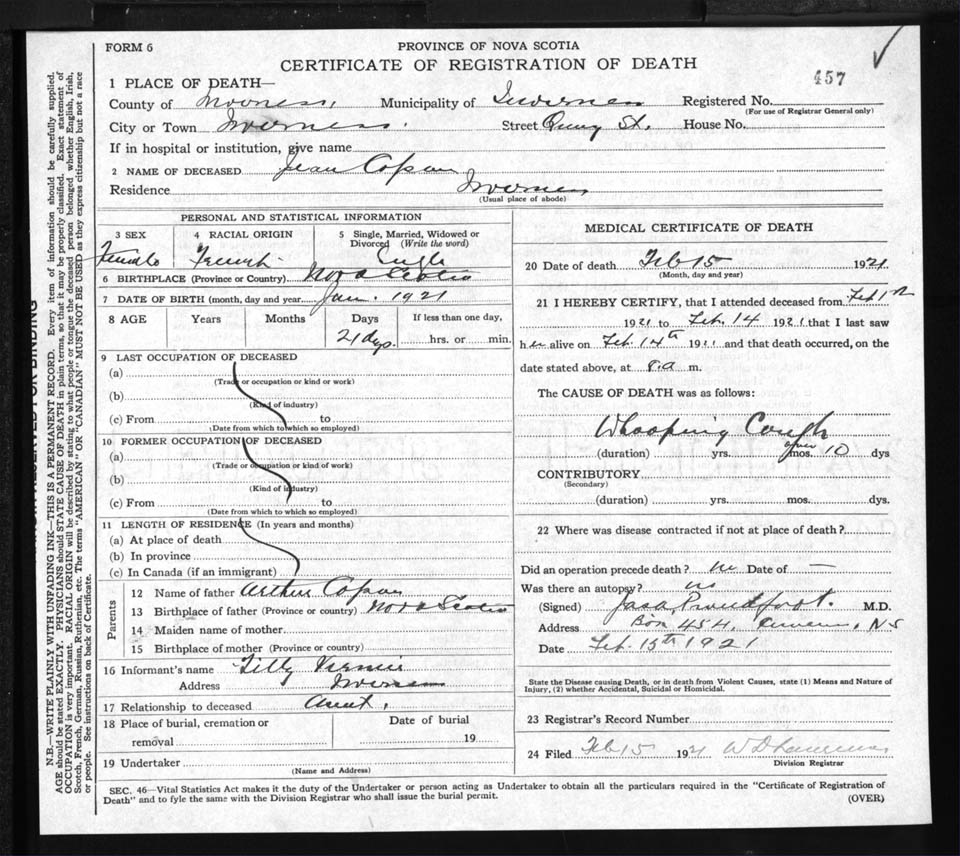 FORM 6
PROVINCE OF NOVA SCOTIA
CERTIFICATE OF REGISTRATION OF DEATH
457
1 PLACE OF DEATH—
County of Inverness. Municipality of Inverness Registered No.
(For use of Registrar General only)
City or Town Inverness. Street St. House No.
If in hospital or institution, give name
2 NAME OF DECEASED Jean
Residence Inverness
(Usual place of abode)
PERSONAL AND STATISTICAL INFORMATION
3 SEX 4 RACIAL ORIGIN 5 Single, Married, Widowed or Divorced (Write the word)
Female French Single
6 BIRTHPLACE (Province or Country) Nova Scotia
7 DATE OF BIRTH (month, day and year Jan. 1921
8 AGE Years Months Days If less than one day,
21 dys. hrs. or min.
9 LAST OCCUPATION OF DECEASED
(a)
(Trade or occupation or kind or work)
(b)
(Kind of industry)
(c) From to
(Date from which to which so employed)
10 FORMER OCCUPATION OF DECEASED
(a)
(Trade or occupation or kind of work)
(b)
(Kind of industry)
(c) From to
(Date from which to which so employed)
11 LENGTH OF RESIDENCE (In years and months)
(a) At place of death
(b) In province
(c) In Canada (if an immigrant)
Parents
12 Name of father Arthur
13 Birthplace of father (Province or country) Nova Scotia
14 Maiden name of mother
15 Birthplace of mother (Province or country)
16 Informant's name Tilly
Address Inverness
17 Relationship to deceased Aunt.
18 Place of burial, cremation or removal Date of burial
19
19 Undertaker
(Name and Address)
MEDICAL CERTIFICATE OF DEATH
20 Date of death Feb 15 1921
(Month, day and year)
21 I HEREBY CERTIFY, that I attended deceased from Feb
1921 to Feb. 14 1921 that I last saw
her alive on Feb. 14th 1921 and that death occurred, on the
date stated above, at 8.a m.
The CAUSE OF DEATH was as follows:
Whooping Cough
(duration) yrs. mos. 10 dys
CONTRIBUTORY
(Secondary)
(duration) yrs. mos. dys.
22 Where was disease contracted if not at place of death?
Did an operation precede death? no Date of —
Was there an autopsy? no
(Signed) Proudfoot. M.D.
Address Box 454, Inverness, N.S
Date Feb. 15th 1921
State the Disease causing Death, or in death from Violent Causes, state (1) Means and Nature of
Injury, (2) whether Accidental, Suicidal or Homicidal.
23 Registrar's Record Number
24 Filed Feb 15 1921
Division Registrar
SEC. 46—Vital Statistics Act makes it the duty of the Undertaker or person acting as Undertaker to obtain all the particulars required in the "Certificate of Registration of
Death" and to fyle the same with the Division Registrar who shall issue the burial permit.
(OVER)
N.B.—WRITE PLAINLY WITH UNFADING INK—THIS IS A PERMANENT RECORD. Every item of information should be carefully supplied.
AGE should be stated EXACTLY. PHYSICIANS should STATE CAUSE OF DEATH in plain terms, so that it may be properly classified. Exact statement of
OCCUPATION is very important. RACIAL ORIGIN will be described by stating to what people or tongue the deceased person belonged whether English, Irish,
Scotch, French, German, Russian, Ruthenian, etc. The terms "AMERICAN" OR "CANADIAN" MUST NOT BE USED as they express citizenship but not a race
or people. See instructions on back of Certificate.